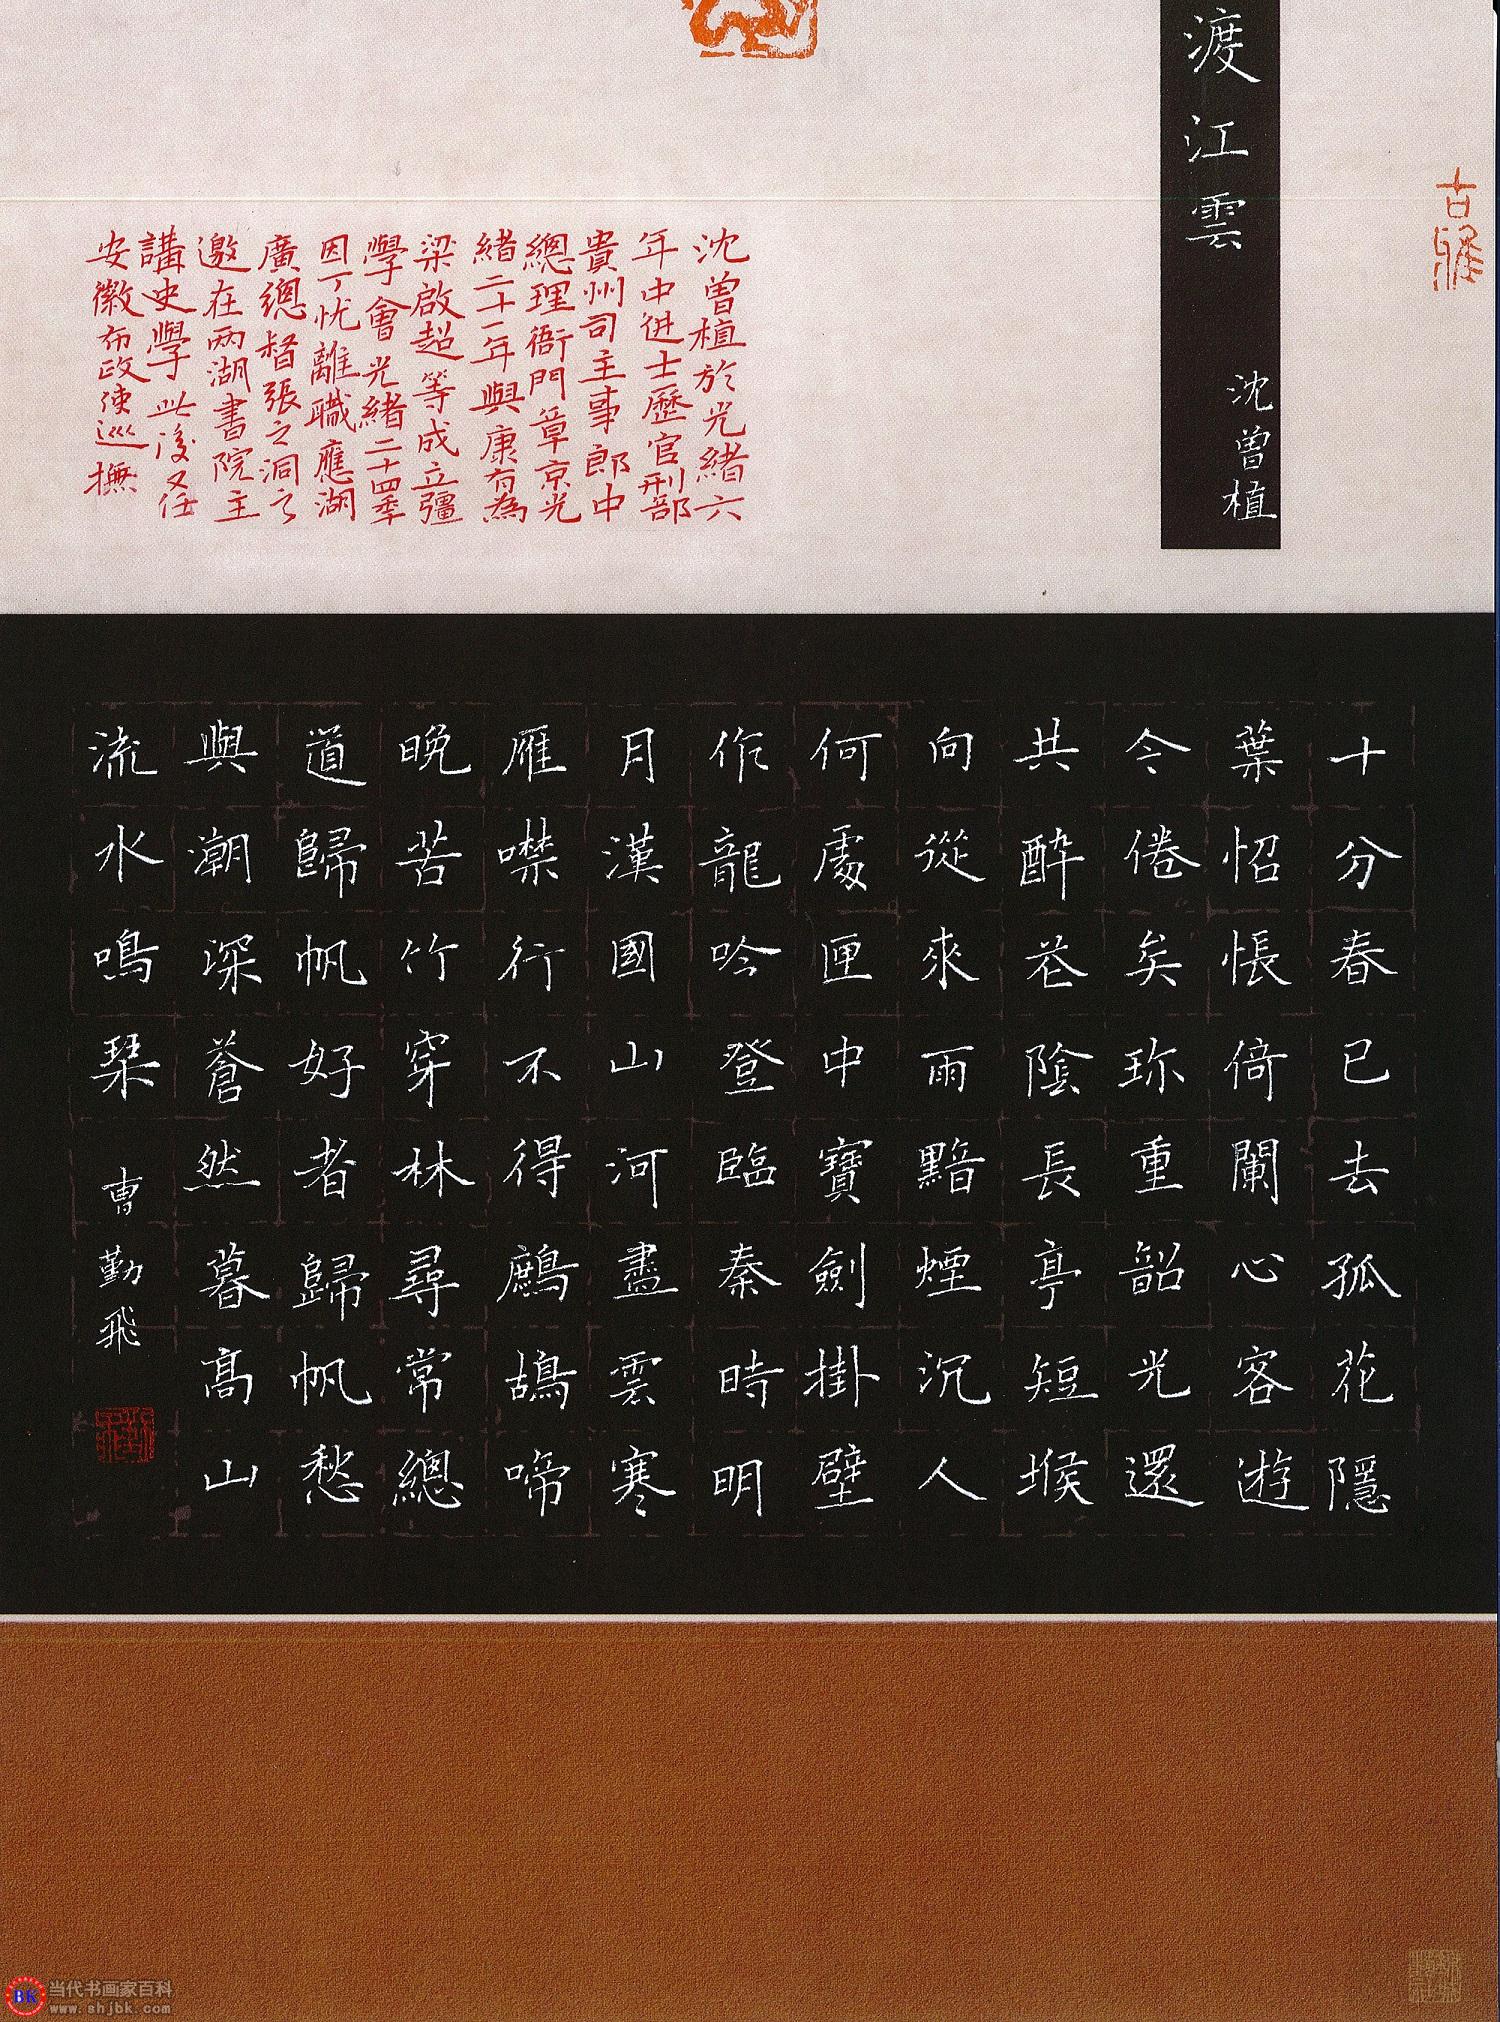 渡江雲
沈曾植
古雅
沈曾植於光緒六
年中進士歷官刑部
貴州司主事郎中
總理衙門章京光
緒二十一年與康有為
梁啟超等成立彊
學會光緒二十四季
因丁忧離職應湖
廣總督張之洞之
邀在两湖書院主
講史學此後又任
安徽布政使巡撫
十分春已去孤花隱
葉怊悵倚闌心客遊
今倦矣珎重韶光還
共醉花陰長亭短堠
向從來雨黯煙沉人
何處匣中寶劍掛壁
作龍吟登臨秦時明
月漢國山河盡雲寒
雁噤行不得鷓鴣啼
晚苦竹穿林尋常總
道歸帆好者歸帆愁
與潮深蒼然暮高山
流水鳴琹
曹勤飛
BK
当代书画家百科
www.shjbk.com